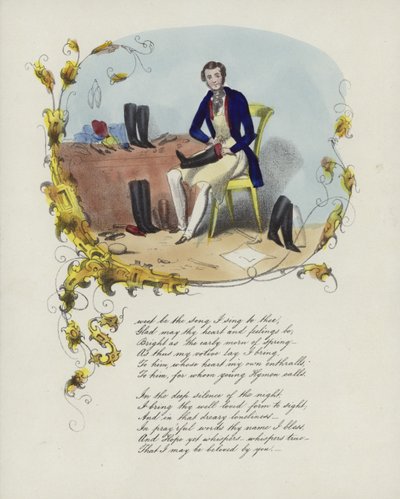 Sweet be the song I sing to thee,
Glad may thy heart and feelings be,
Bright as the early morn of Spring—
As thus my votive lay I bring.
To him, whose heart my own enthralls,
To him, for whom young Hymen calls.
In the deep silence of the night,
I bring thy well loved form to sight,
And in that dreary loneliness—
In pray'rful words thy name I bless.
And Hope yet whispers, whispers true—
That I may be beloved by you.—